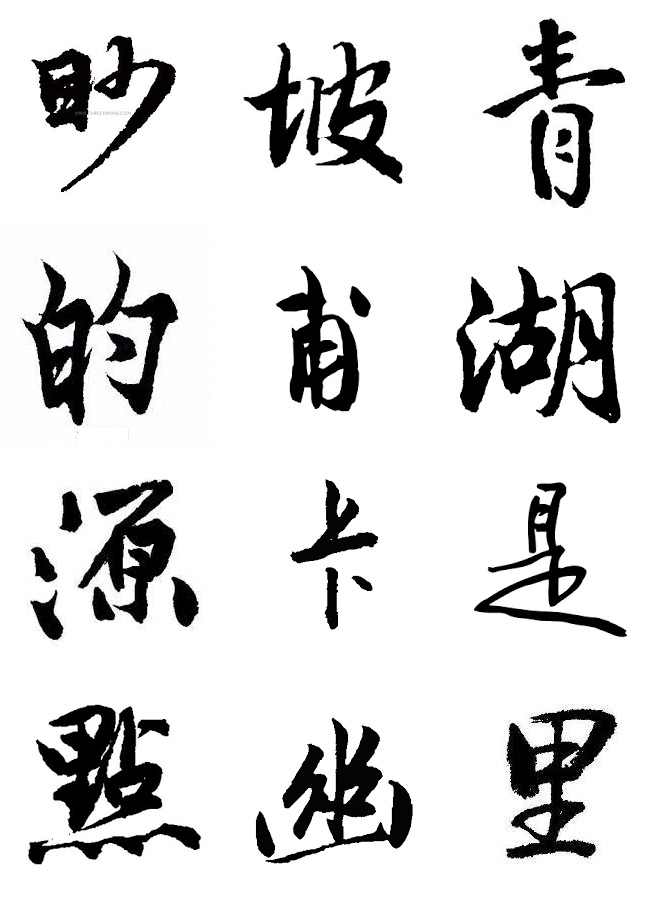 青湖是里
坡甫卡幽
眇的源點